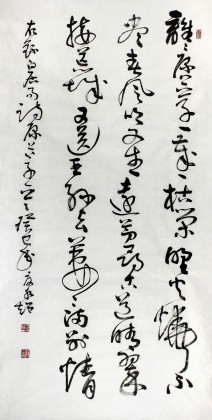 離〻原上草一歲一枯榮野火燒不
盡春風吹又生遠芳侵古道晴翠
接荒城又送王孫去萋〻滿別情
白居易詩原上草 癸巳